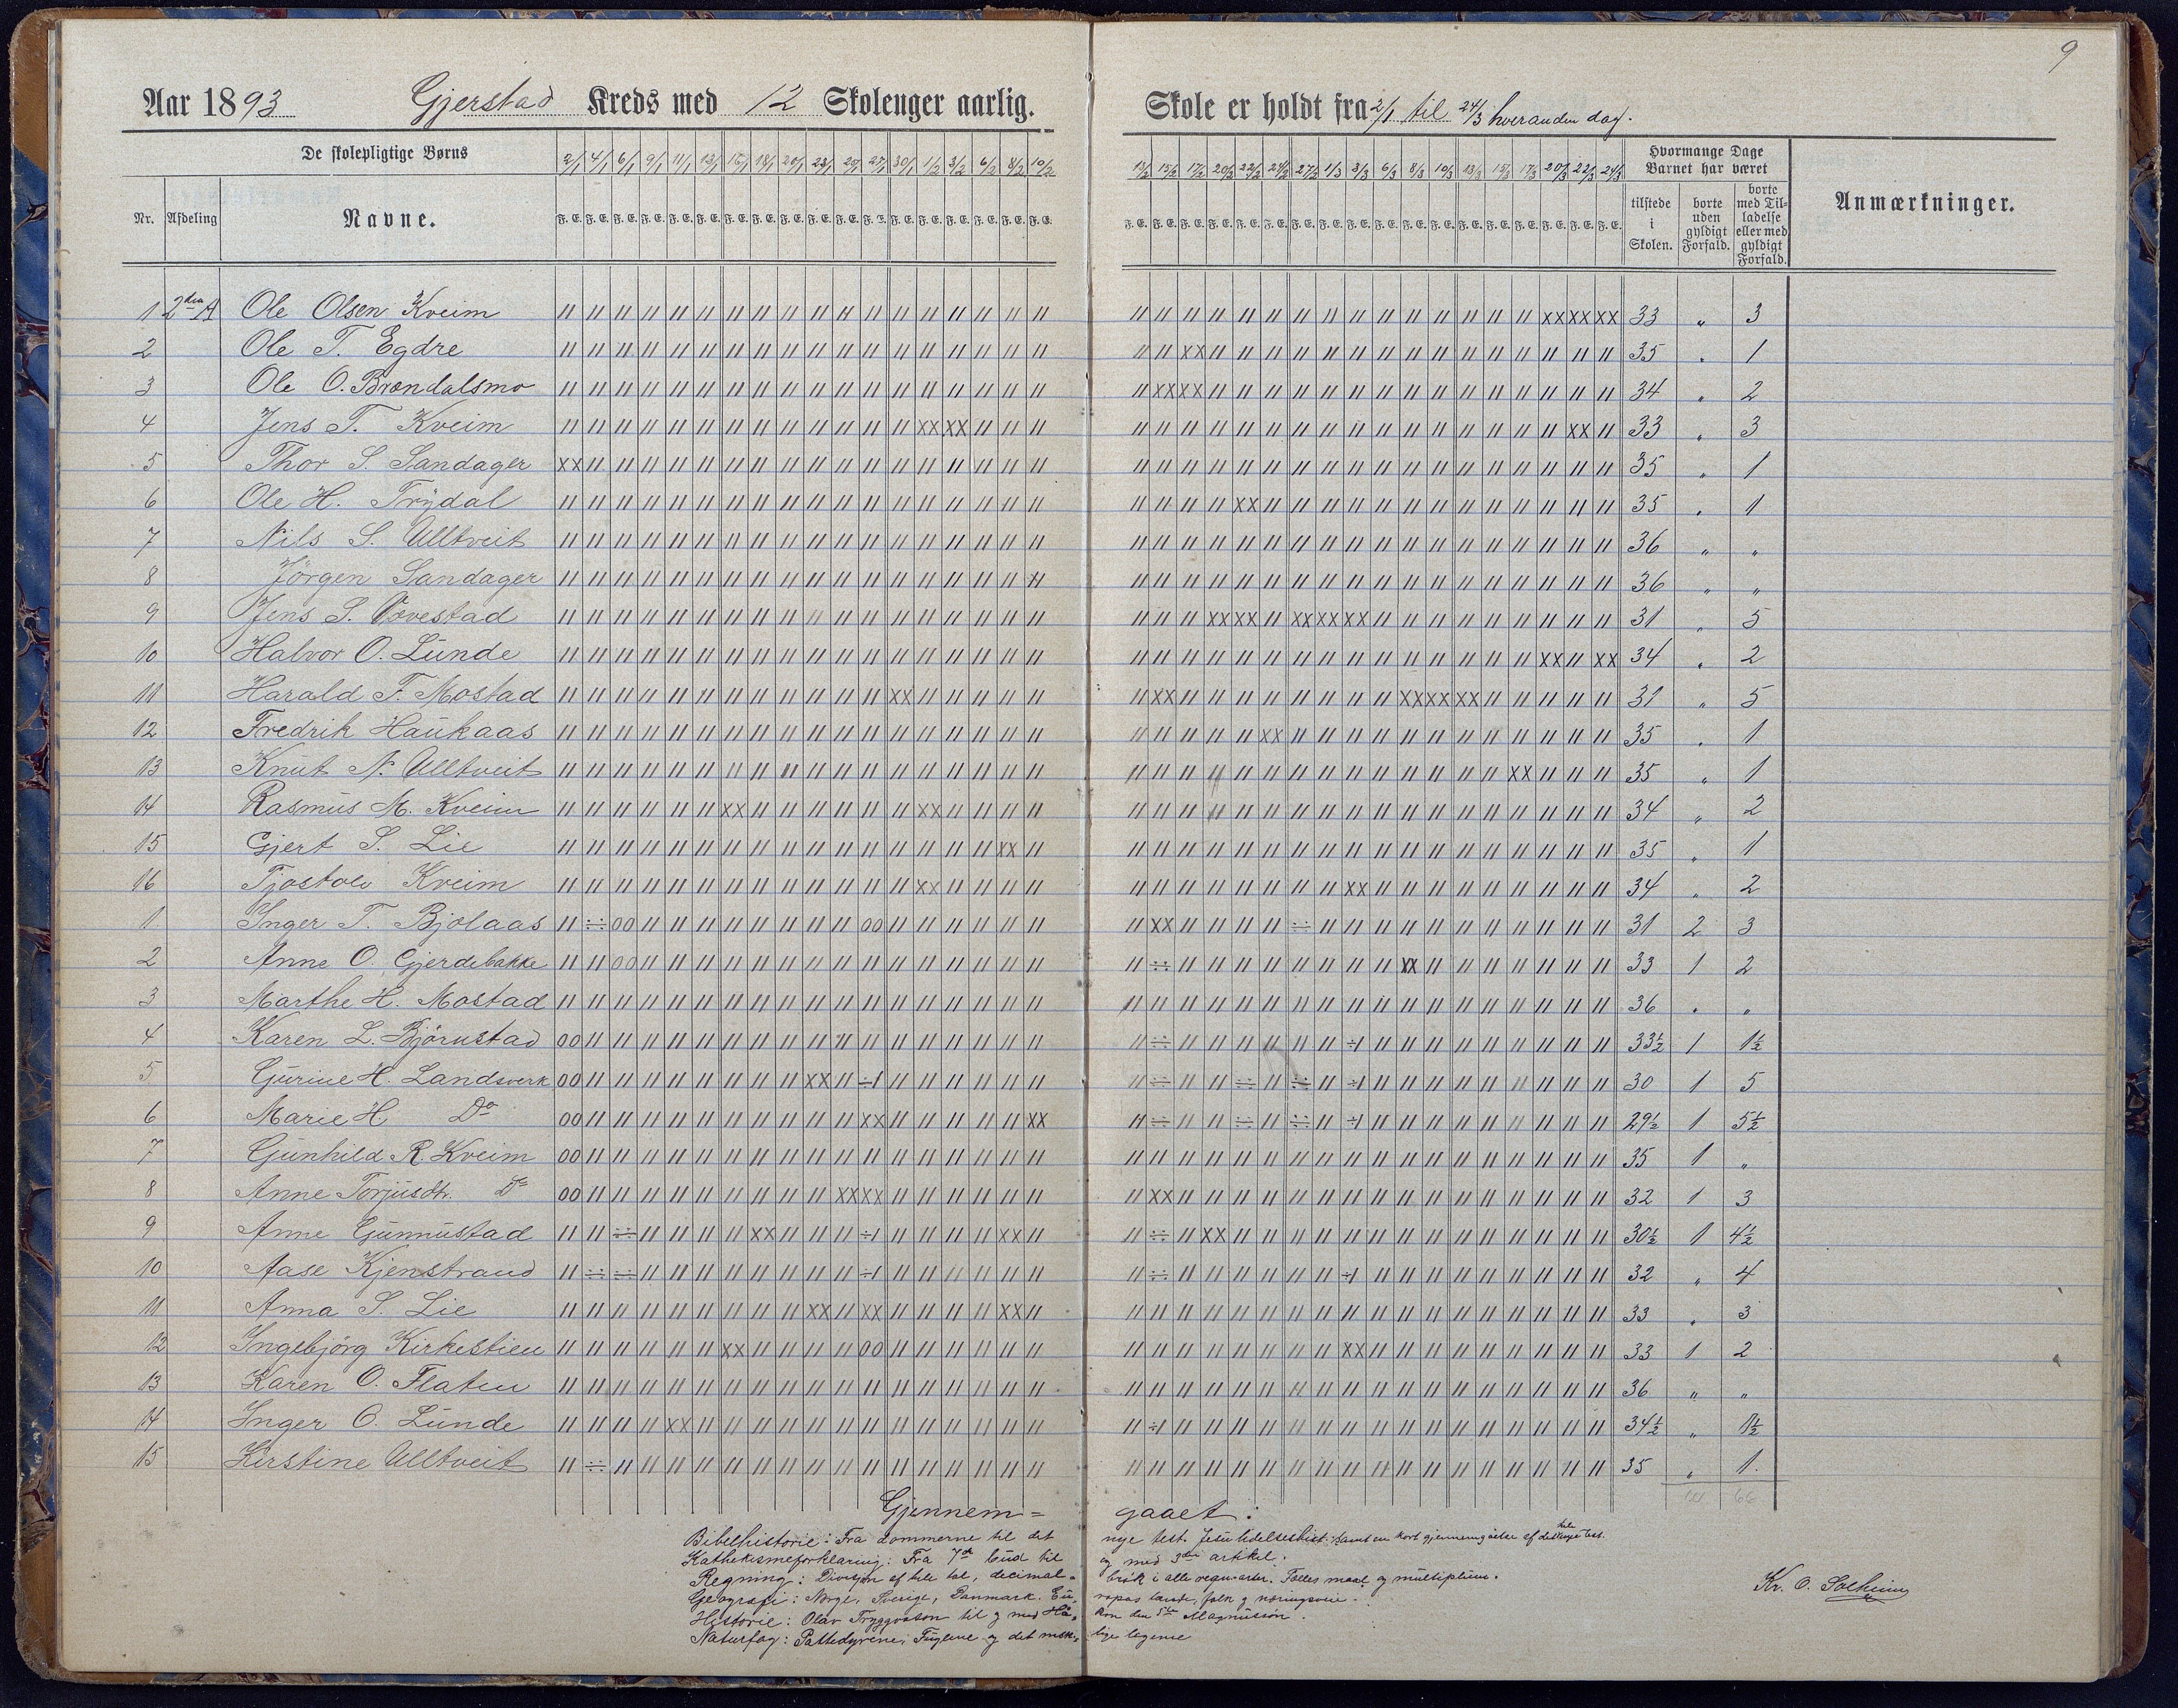 9
Aar 1893 Gjerstad Kreds med 12 Skoleuger aarlig. Skole er holdt fra 2/1 til 24/3 hveranden dag.
De skolepligtige Børns
2/1 4/1 6/1 9/1 11/1 13/1 16/1 18/1 20/1 23/1 25/1 27/1 30/1 1/2 3/2 6/2 8/2 10/2 13/2 15/2 17/2 20/2 22/2 24/2 27/2 1/3 3/3 6/3 8/3 10/3 13/3 15/3 17/3 20/3 22/3 24/3
Hvormange Dage Barnet har været
Anmærkninger.
Nr. Afdeling Navne.
tilstede i Skolen. borte uden gyldigt Forfald. borte med Tilladelse eller med gyldigt Forfald.
1 2den A Ole Olsen Kveim 33 „ 3
2 Ole T. Egdre 35 „ 1
3 Ole O. Brændalsmo 34 „ 2
4 Jens T. Kveim 33 „ 3
5 Thor S. Sandager 35 „ 1
6 Ole H. Trydal 35 „ 1
7 Nils S. Ulltveit 36 „ „
8 Jörgen Sandager 36 „ „
9 Jens S. Vævestad 31 „ 5
10 Halvor O. Lunde 34 „ 2
11 Harald F. Mostad 31 „ 5
12 Fredrik Haukaas 35 „ 1
13 Knut N. Ulltveit 35 „ 1
14 Rasmus M. Kveim 34 „ 2
15 Gjert S. Lie 35 „ 1
16 Tjostolv Kveim 34 „ 2
1 Inger T. Bjølaas 31 2 3
2 Anne O. Gjerdebakke 33 1 2
3 Marthe H. Mostad 36 „ „
4 Karen L. Björnstad 33½ 1 1½
5 Gurine H. Landsverk 30 1 5
6 Marie H. Do 29½ 1 5½
7 Gunhild R. Kveim 35 1 „
8 Anne Torjusdtr. Do 32 1 3
9 Anne Gunnustad 30½ 1 4½
10 Aase Kjenstrand 32 „ 4
11 Anna S. Lie 33 „ 3
12 Ingebjörg Kirkestien 33 1 2
13 Karen O. Flaten 36 „ „
14 Inger O. Lunde 34½ „ 1½
15 Kirstine Ulltveit 35 „ 1.
66
Gjennem= gaaet:
Bibelhistorie: Fra dommerne til det nye test. Jesu lidelseshist. samt en kort gjennemgåelse af det hele nye test.
Kathekismeforklaring: Fra 7de bud til og med 3die artikel.
Regning: Divisjon af hele tal, decimal= brök i alle regn.-arter. Fælles maal og multiplum.
Geografi: Norge, Sverige, Danmark. Eu= ropas lande, folk og næringsveie.
Historie: Olav Tryggvason til og med Hå= kon den 5te Magnussön.
Naturfag: Pattedyrene, Fuglene og det mske= lige legeme
Kr. O. Solheim